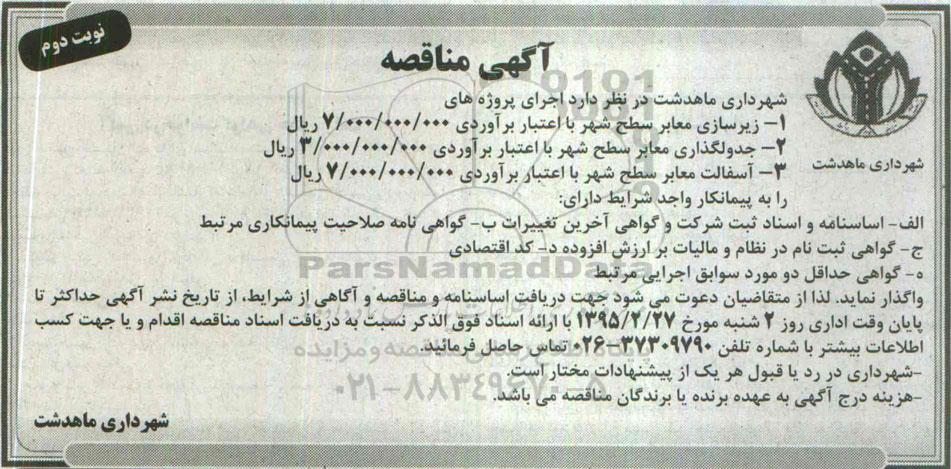 نوبت دوم
آگهی مناقصه
شهرداری ماهدشت
شهرداری ماهدشت در نظر دارد اجرای پروژه های
۱- زیرسازی معابر سطح شهر با اعتبار برآوردی ۷/۰۰۰/۰۰۰/۰۰۰ ریال
۲- جدولگذاری معابر سطح شهر با اعتبار برآوردی ۳/۰۰۰/۰۰۰/۰۰۰ ریال
۳- آسفالت معابر سطح شهر با اعتبار برآوردی ۷/۰۰۰/۰۰۰/۰۰۰ ریال
را به پیمانکار واجد شرایط دارای:
الف- اساسنامه و اسناد ثبت شرکت و گواهی آخرین تغییرات ب- گواهی نامه صلاحیت پیمانکاری مرتبط
ج- گواهی ثبت نام در نظام و مالیات بر ارزش افزوده د- کد اقتصادی
ه- گواهی حداقل دو مورد سوابق اجرایی مرتبط
واگذار نماید. لذا از متقاضیان دعوت می شود جهت دریافت اساسنامه و مناقصه و آگاهی از شرایط، از تاریخ نشر آگهی حداکثر تا
پایان وقت اداری روز ۲ شنبه مورخ ۱۳۹۵/۲/۲۷ با ارائه اسناد فوق الذکر نسبت به دریافت اسناد مناقصه اقدام و یا جهت کسب
اطلاعات بیشتر با شماره تلفن ۳۷۳۰۹۷۹۰-۰۲۶ تماس حاصل فرمائید.
-شهرداری در رد یا قبول هر یک از پیشنهادات مختار است.
-هزینه درج آگهی به عهده برنده یا برندگان مناقصه می باشد.
شهرداری ماهدشت
ParsNamadData
۰۲۱-۸۸۳۴۹۶۷۰-۵